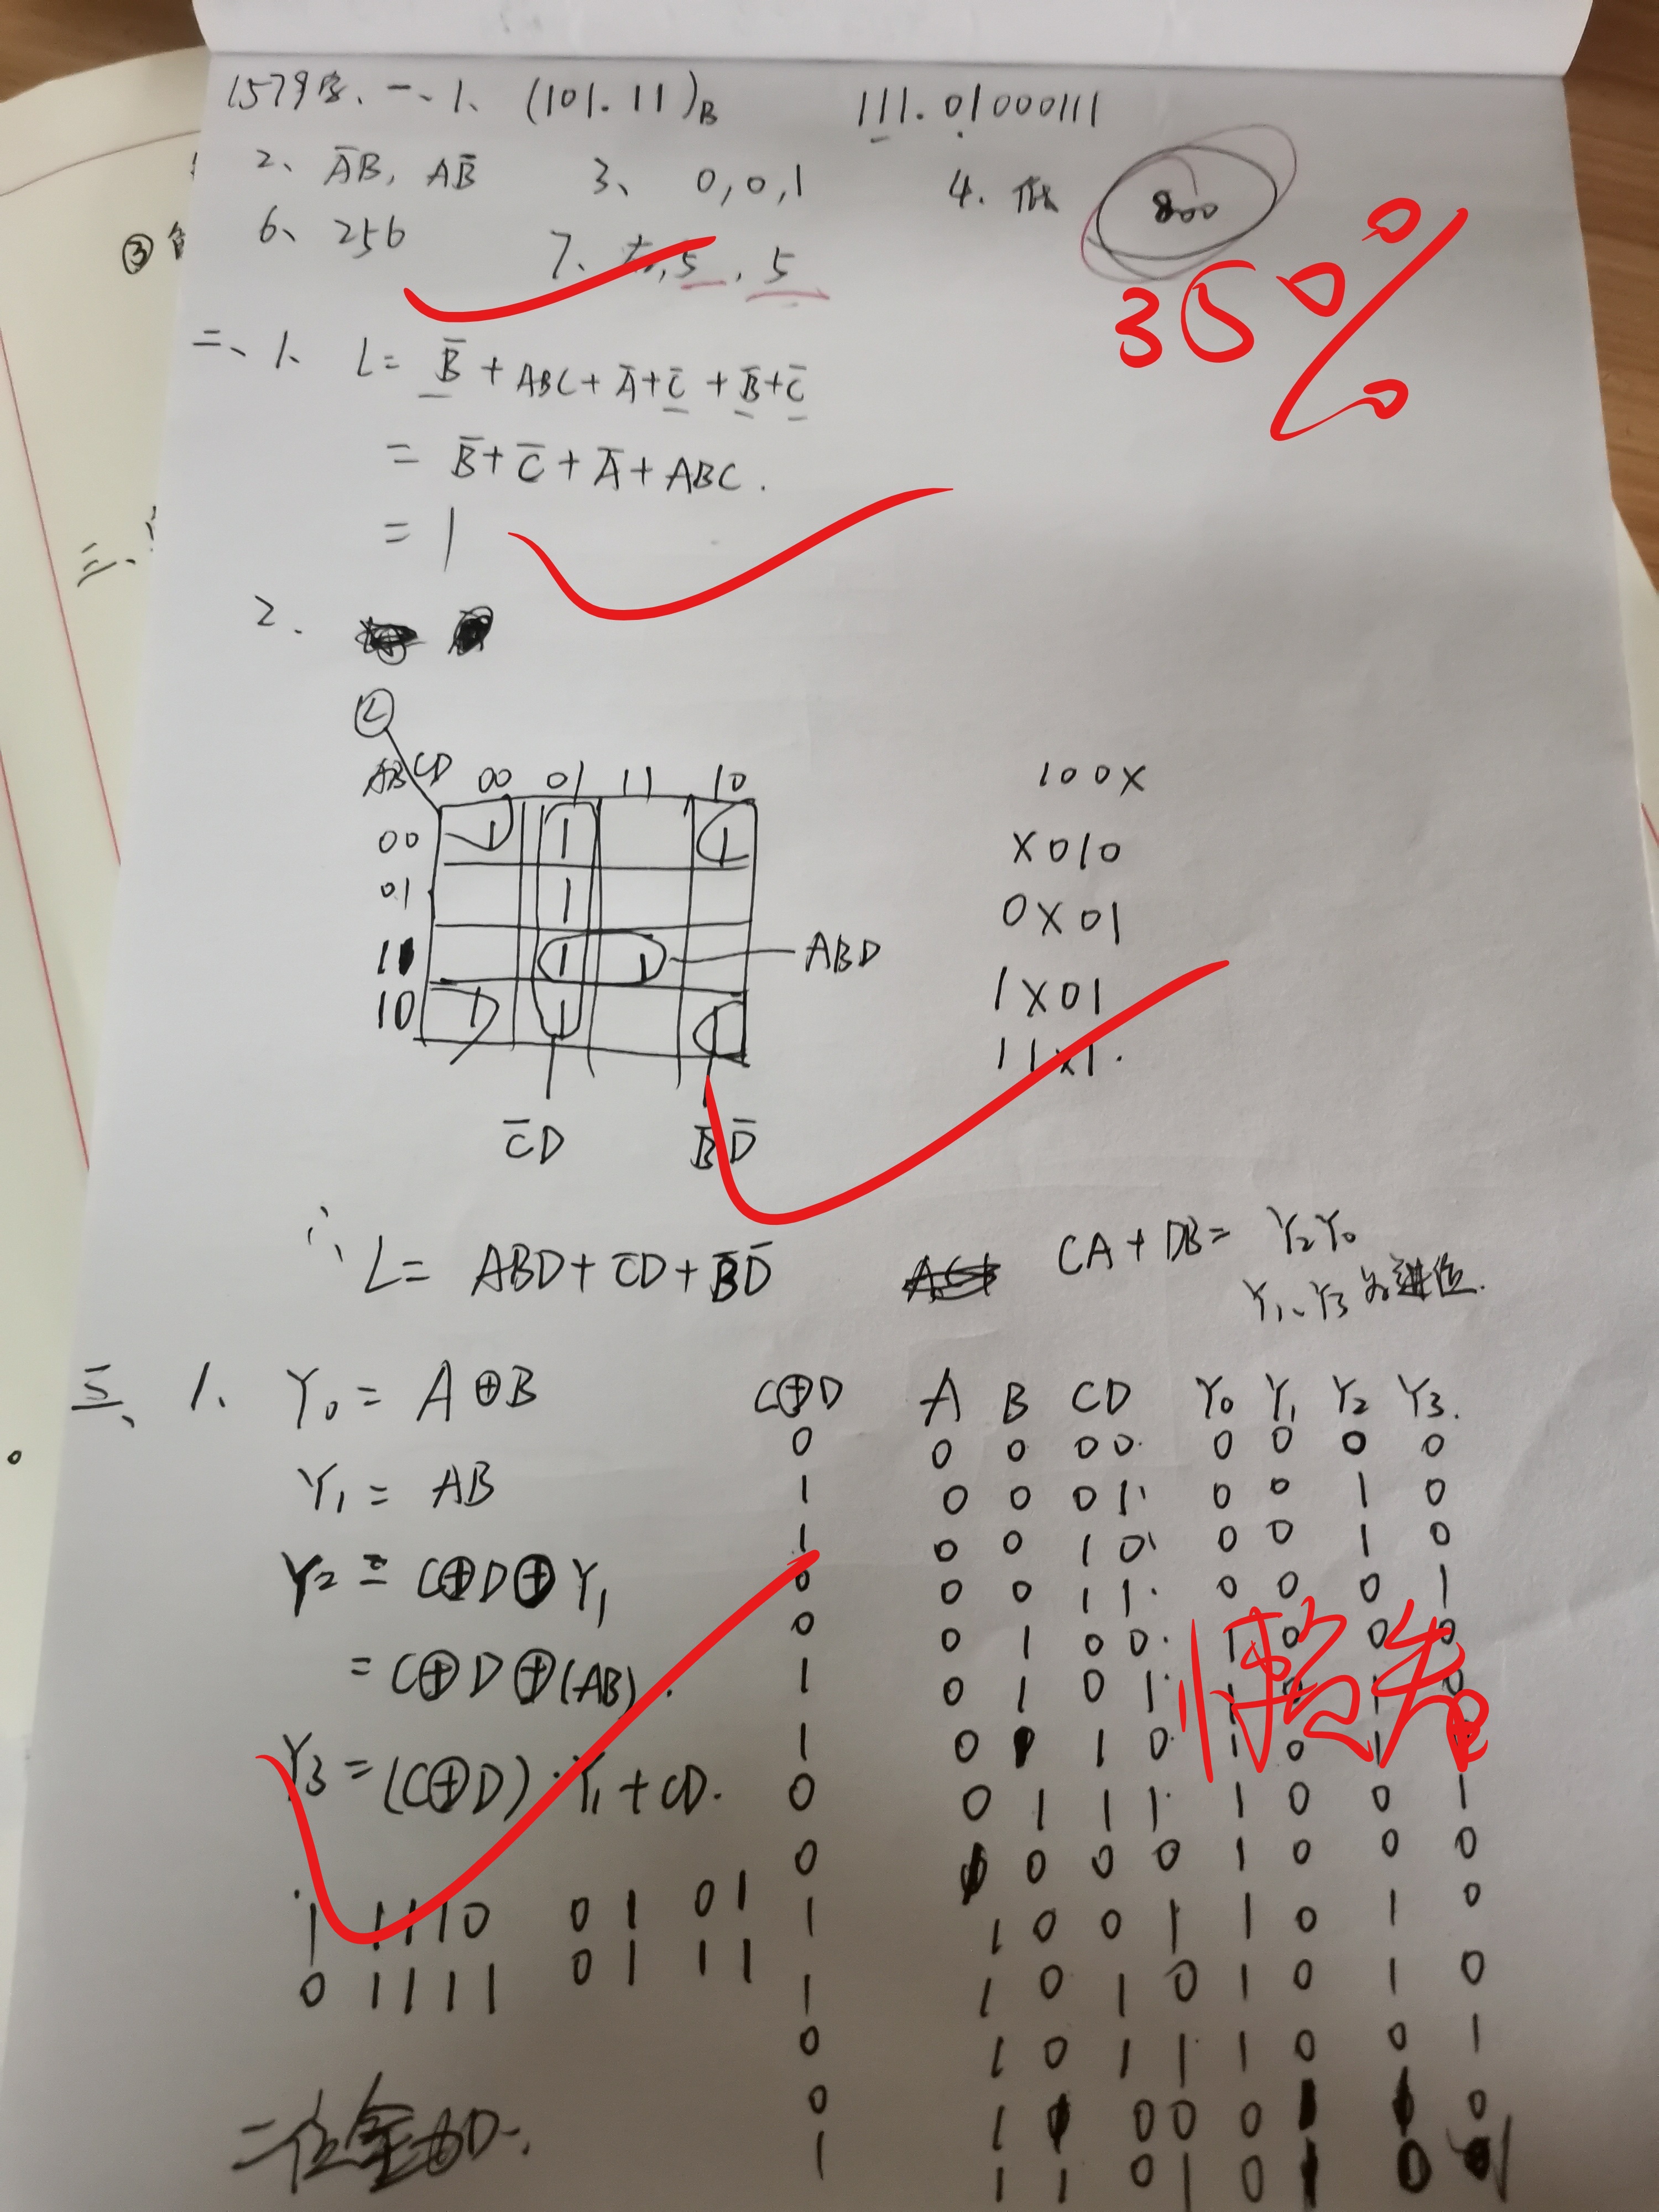 1579 一、1、 (101.11)B 111.01000111
2、 A̅B, AB̅ 3、 0,0,1 4. 低 800
③
6、 256 7、 5, 5
35%
二、1、 L= B̅ + ABC + A̅+C̅ + B̅+C̅
= B̅+C̅+A̅+ABC.
= 1
三、
2.
L
AB CD 00 01 11 10
00 1 1 1
01 1
11 1 1 ABD
10 1 1 1
C̅D B̅D̅
100X
X010
0X01
1X01
11X1.
∴ L= ABD+C̅D+B̅D̅
CA+DB= Y2Y0
Y1、Y3为进位.
三、1、 Y0 = A⊕B
Y1 = AB
Y2 = C⊕D⊕Y1
= C⊕D⊕(AB).
Y3 = (C⊕D)·Y1+CD.
1 1110 01 01
0 1111 01 11
二位全加.
C⊕D A B C D Y0 Y1 Y2 Y3.
0 0 0 0 0 0 0 0 0
1 0 0 0 1 0 0 1 0
1 0 0 1 0 0 0 1 0
0 0 0 1 1 0 0 0 1
0 0 1 0 0 1 0 0 0
1 0 1 0 1 1 0 1 0
1 0 1 1 0 1 0 1
0 0 1 1 1 1 0 0 1
0 1 0 0 0 1 0 0 0
1 1 0 0 1 1 0 1 0
1 1 0 1 0 1 0 1 0
0 1 0 1 1 1 0 0 1
0 1 1 0 0 0 1 1 0
1 1 1 0 1 0 1 0 1